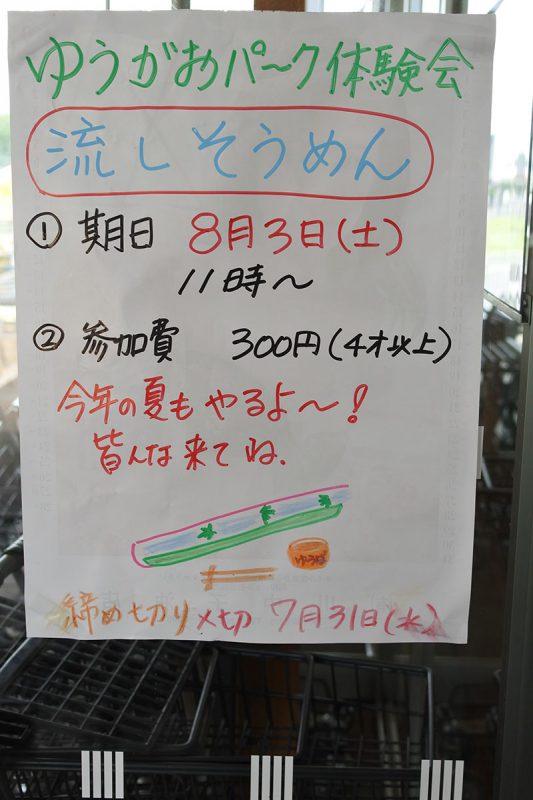 ゆうがおパーク体験会
流しそうめん
① 期日 8月3日(土)
11時〜
② 参加費 300円(4才以上)
今年の夏もやるよ〜!
皆んな来てね.
ゆうパ
締め切り 〆切 7月31日(水)